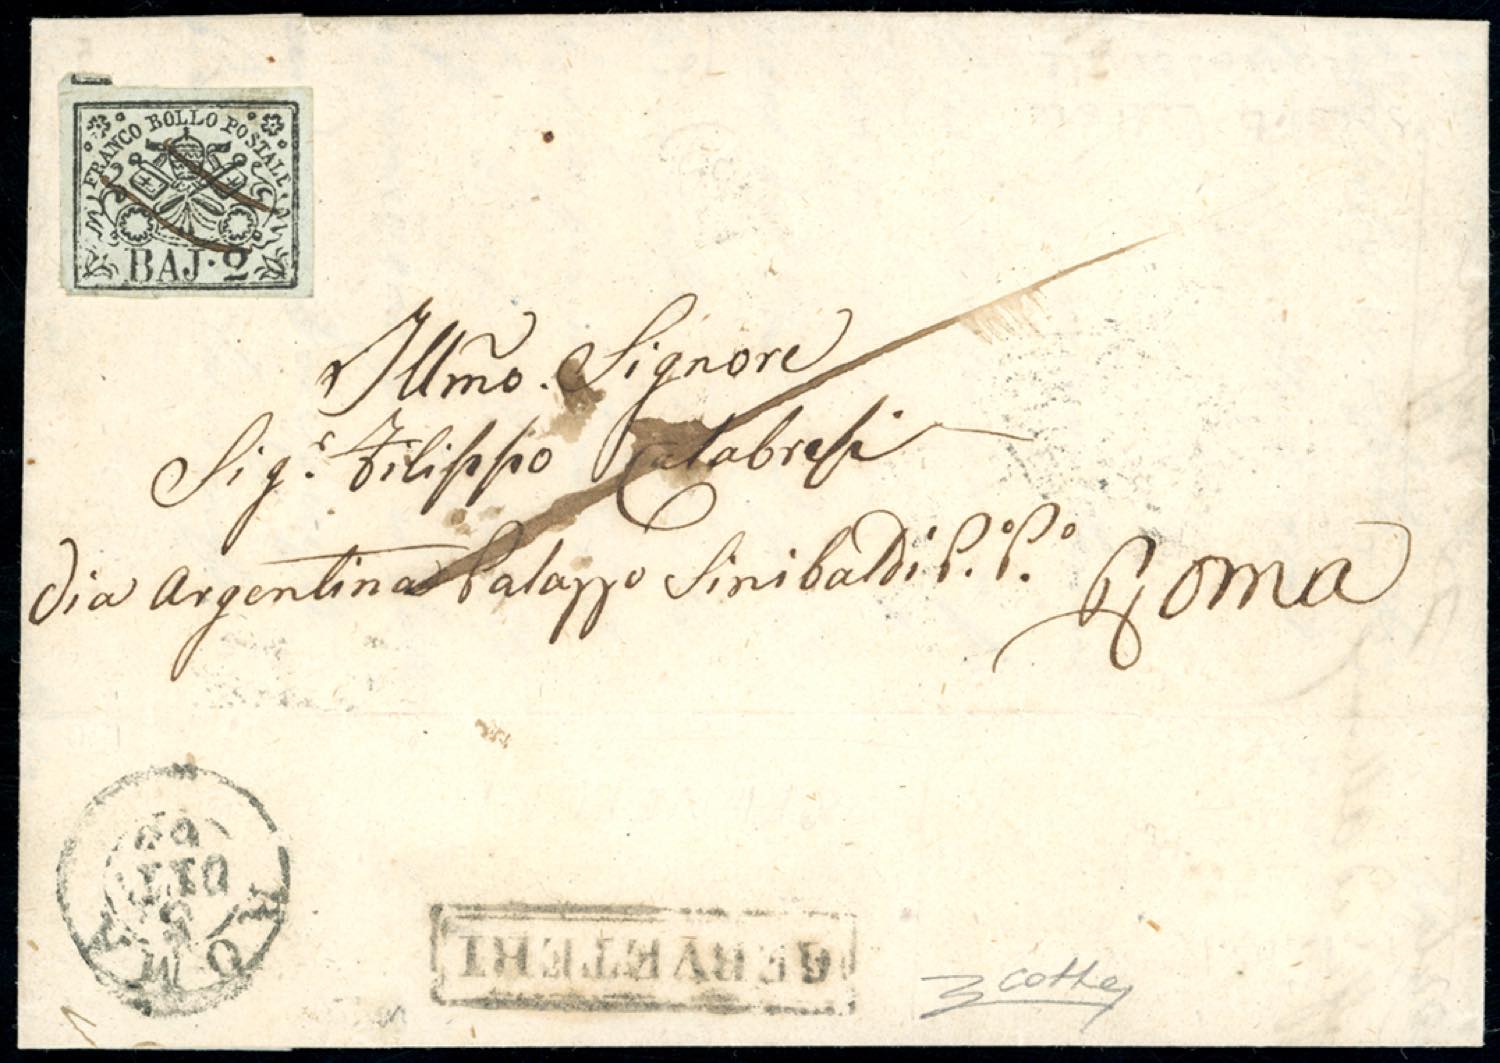 FRANCO BOLLO POSTALE
BAJ·2
Illm̃o. Signore
Sigr. Filippo Calabresi
Via Argentina Palazzo Sinibaldi P.º P.º Roma
ROMA
OTT
CERVETERI